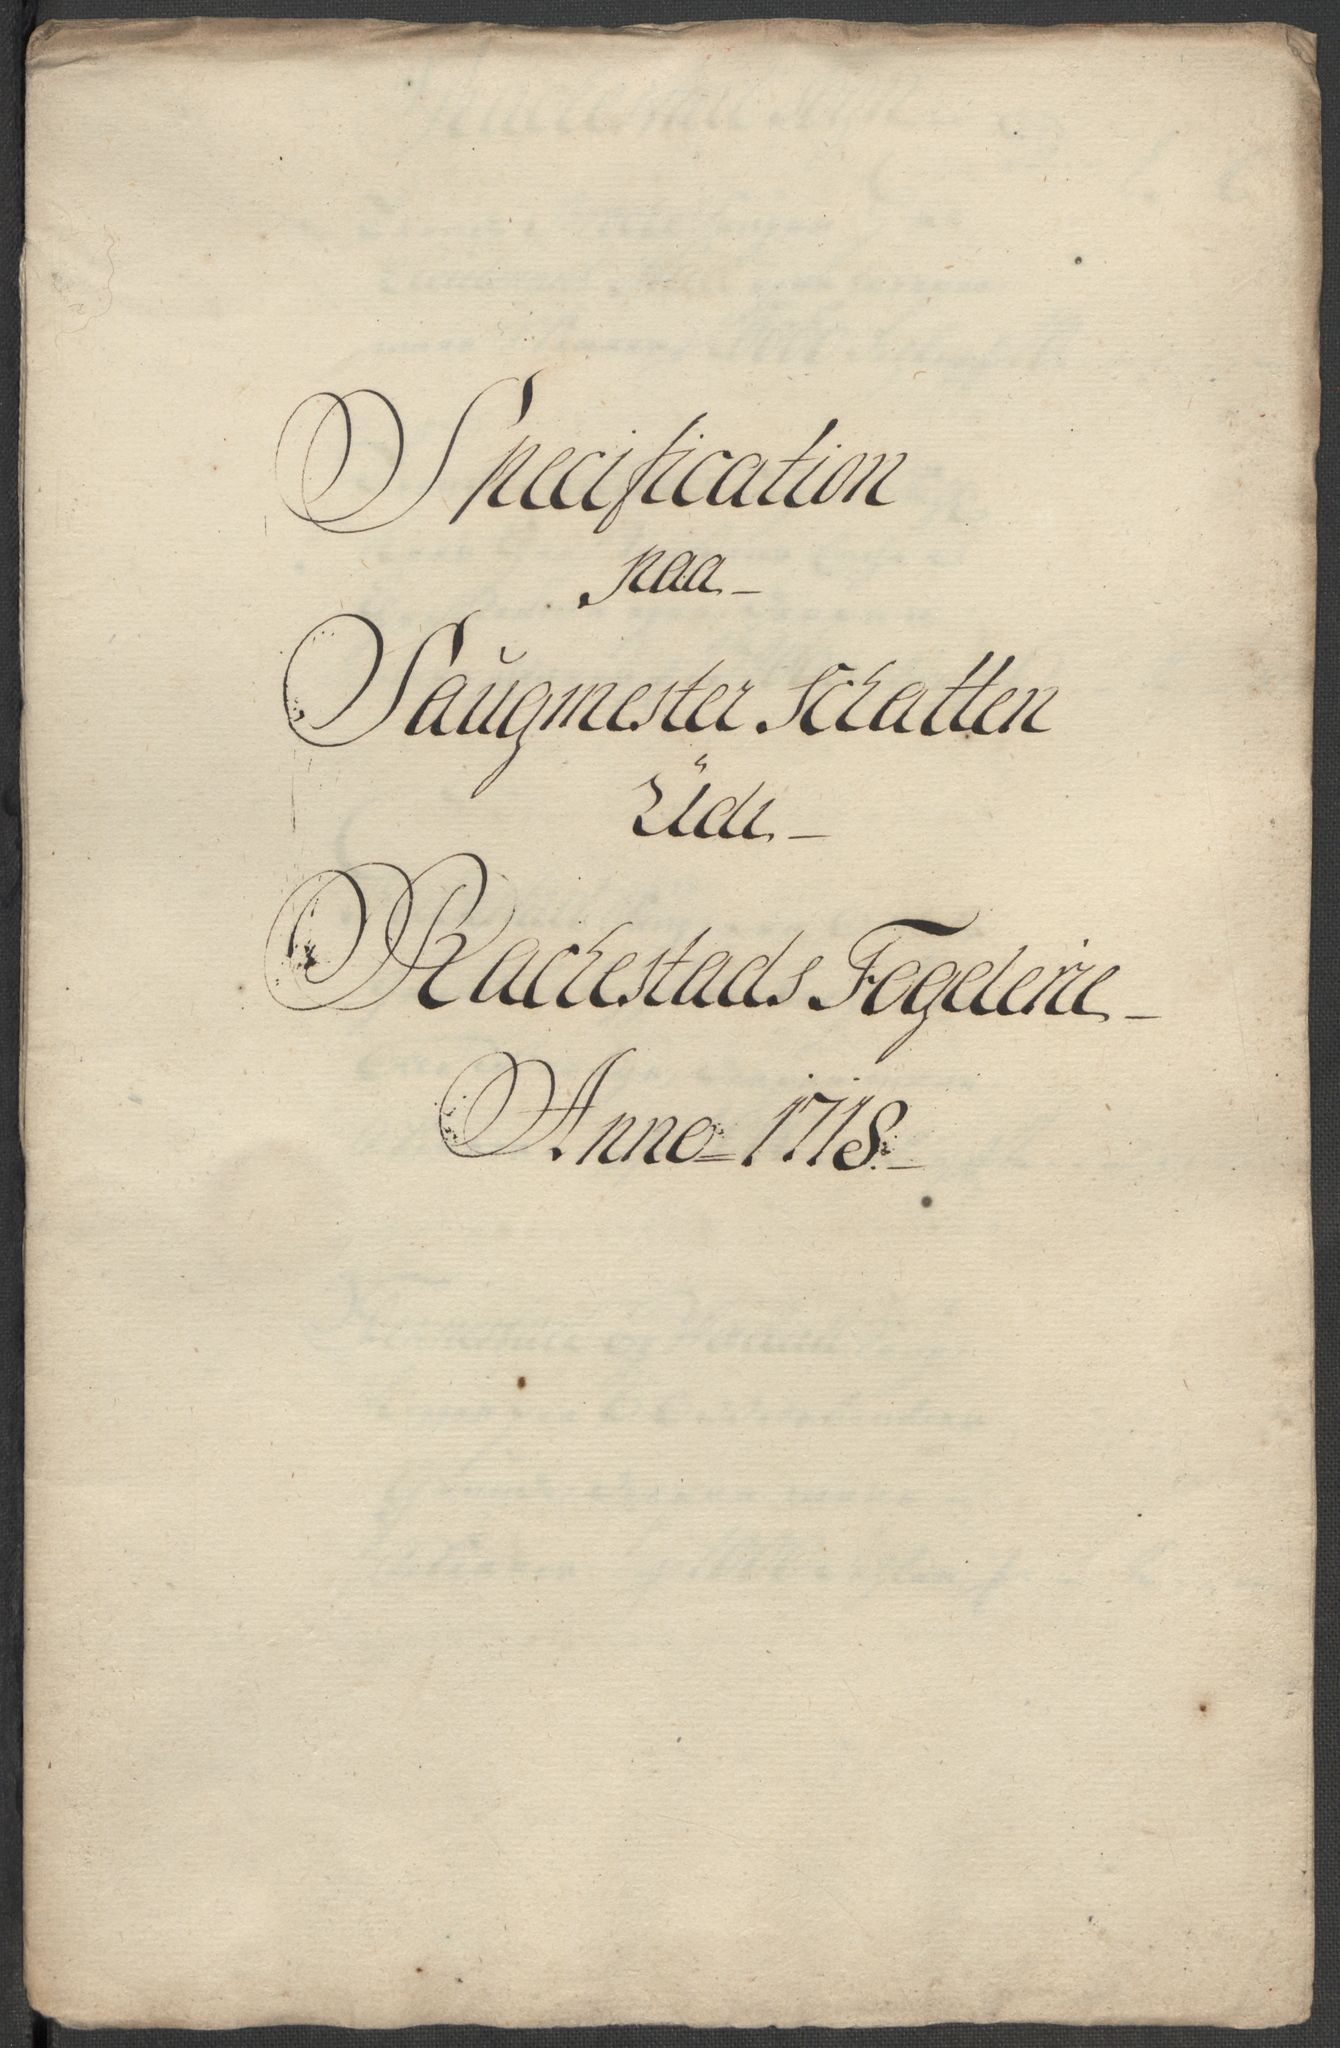 Specification
paa
Saugmester Schatten
Udi
Rackestads Fogderie
Anno 1718